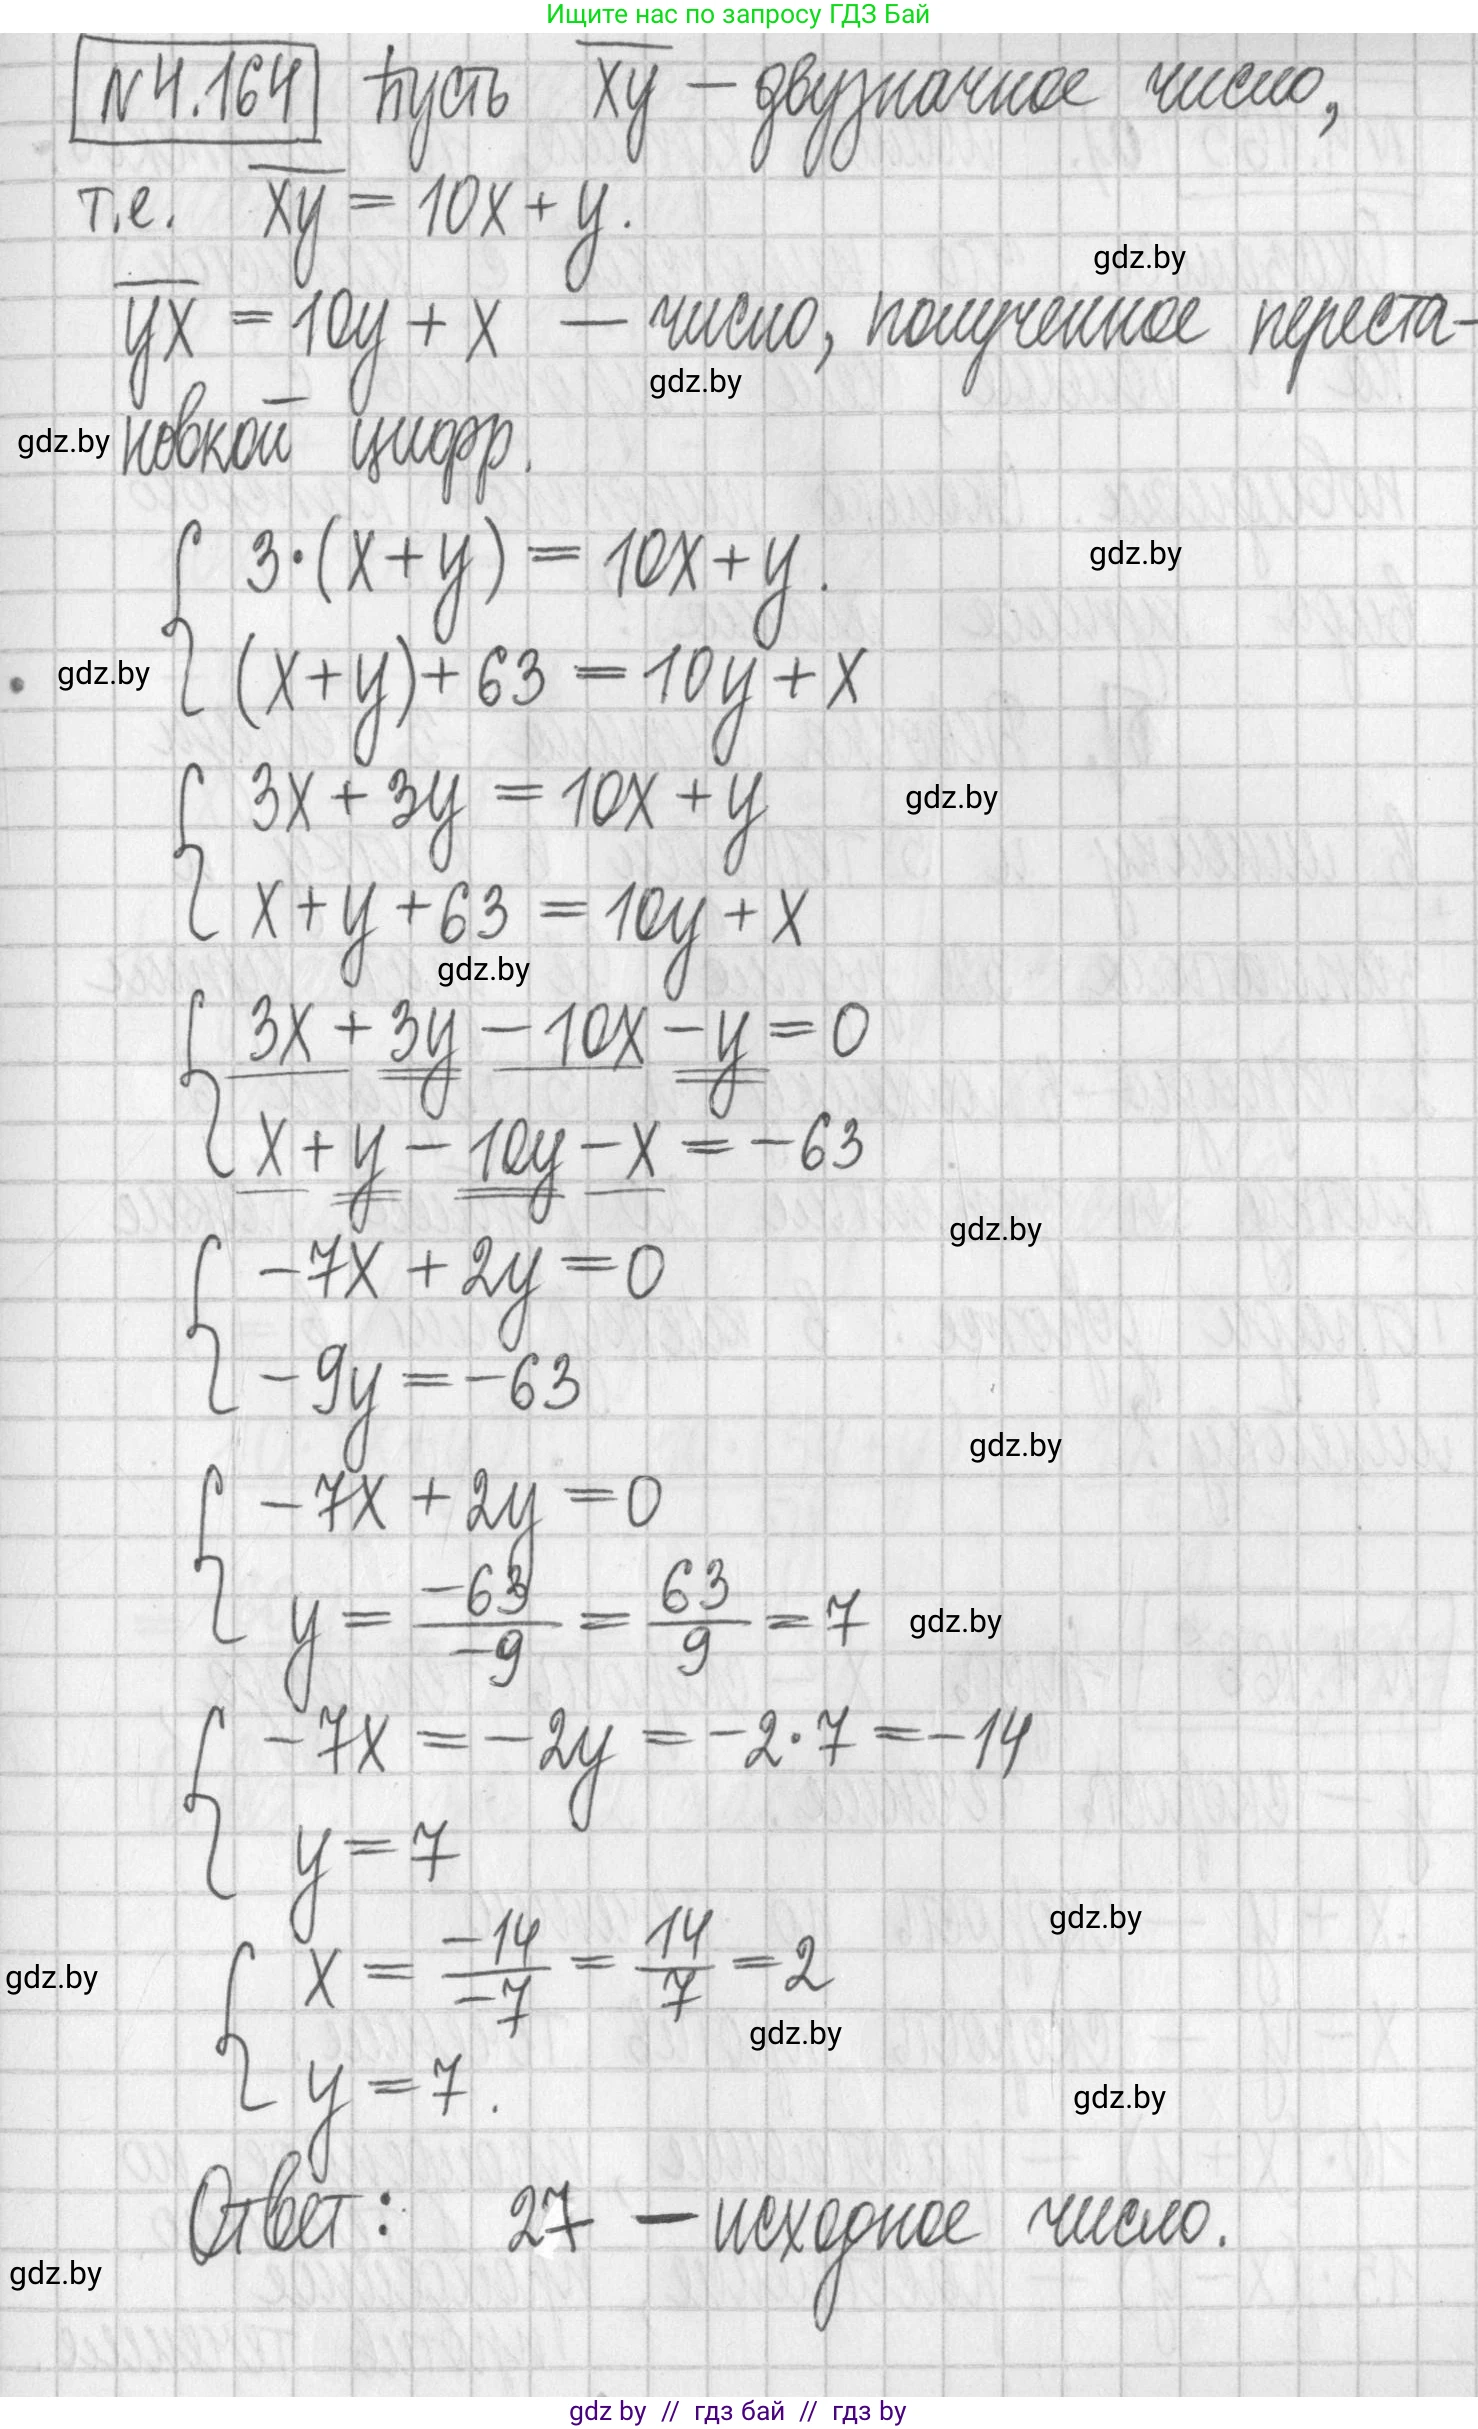 Ищите нас по запросу ГДЗ Бай
N4.164 Пусть x̅y̅ – двузначное число,
т.е. x̅y̅ = 10x + y.
gdz.by
y̅x̅ = 10y + x — число, полученное переста-
gdz.by
gdz.by новкой цифр.
3·(x+y) = 10x+y.
gdz.by
(x+y)+63 = 10y+x
gdz.by
3x + 3y = 10x + y
gdz.by
x+y+63 = 10y+x
gdz.by
3x + 3y – 10x – y = 0
x + y – 10y – x = –63
gdz.by
–7x + 2y = 0
–9y = –63
gdz.by
–7x + 2y = 0
y = –63/–9 = 63/9 = 7
gdz.by
–7x = –2y = –2·7 = –14
y = 7
gdz.by
x = –14/–7 = 14/7 = 2
gdz.by
gdz.by
y = 7.
gdz.by
Ответ: 27 – исходное число.
gdz.by
gdz by // гдз бай // гдз by